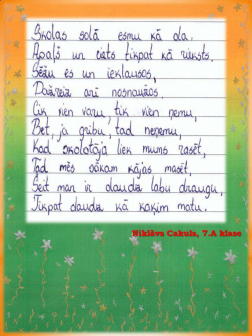 Skolas solā esmu kā ola.
Apaļš un ciets tikpat kā rieksts.
Sēžu es un ieklausos,
Dažreiz arī nosnaužos.
Cik vien varu, tik vien ņemu,
Bet, ja gribu, tad neņemu,
Kad skolotāja liek mums rasēt,
Tad mēs sākam kājas masēt,
Šeit man ir daudz labu draugu,
Tikpat daudz kā kaķim matu.
Niklāvs Cakuls, 7.A klase